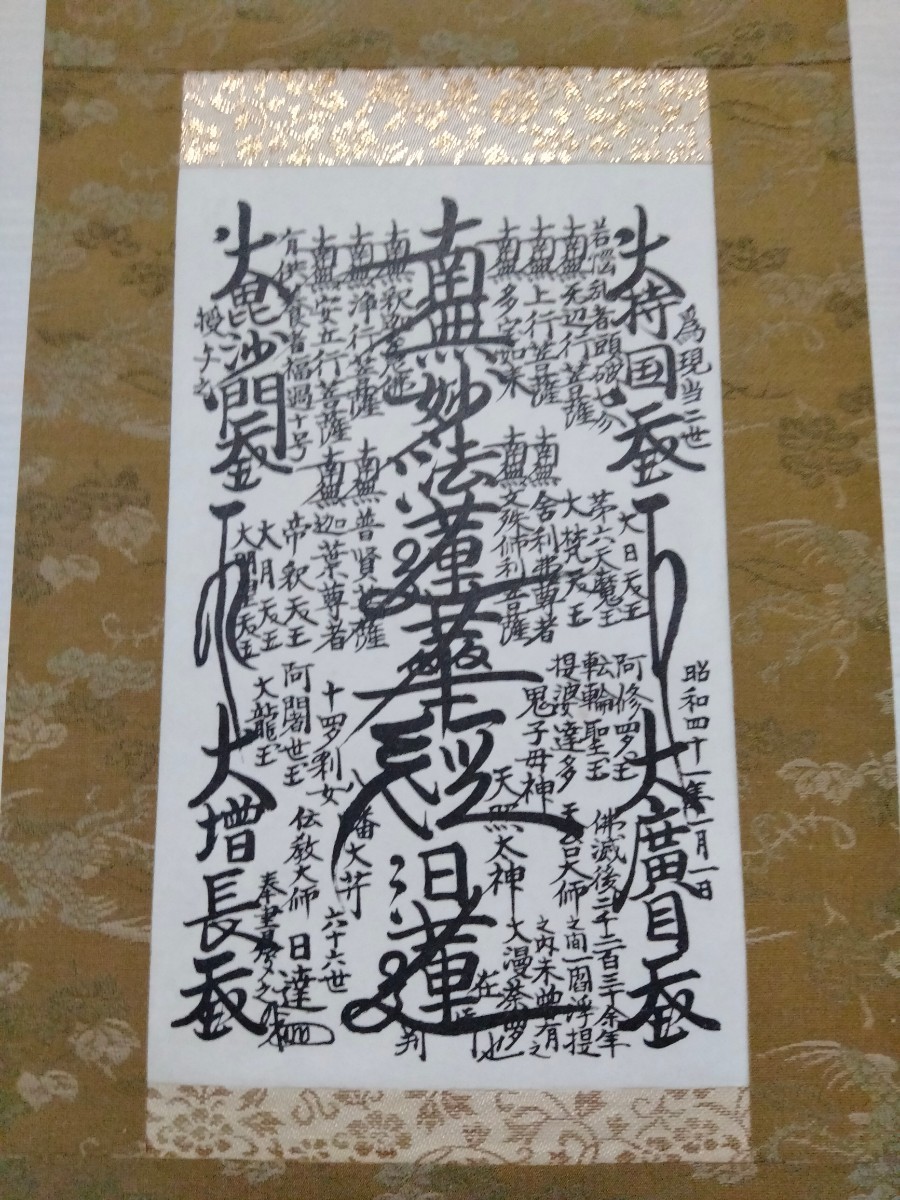 爲現当二世
大持国天王
大廣目天王
昭和四十一年一月一日
若悩乱者頭破七分
南無無辺行菩薩
南無上行菩薩
南無多宝如来
南無妙法蓮華経
日蓮
在御判
南無釈迦牟尼仏
南無浄行菩薩
南無安立行菩薩
有供養者福過十号
大毘沙門天王
授与之
大増長天王
南無舎利弗尊者
南無文殊師利菩薩
南無普賢菩薩
南無迦葉尊者
大日天王
第六天魔王
大梵天王
帝釈天王
大月天王
大明星天王
阿修罗王
転輪聖王
提婆達多
鬼子母神
天照太神
十罗刹女
阿闍世王
大龍王
八幡大菩薩
天台大師
伝教大師
佛滅後二千二百三十余年
之間一閻浮提
之内未曽有之
大漫荼罗也
六十六世
日達
奉書写之